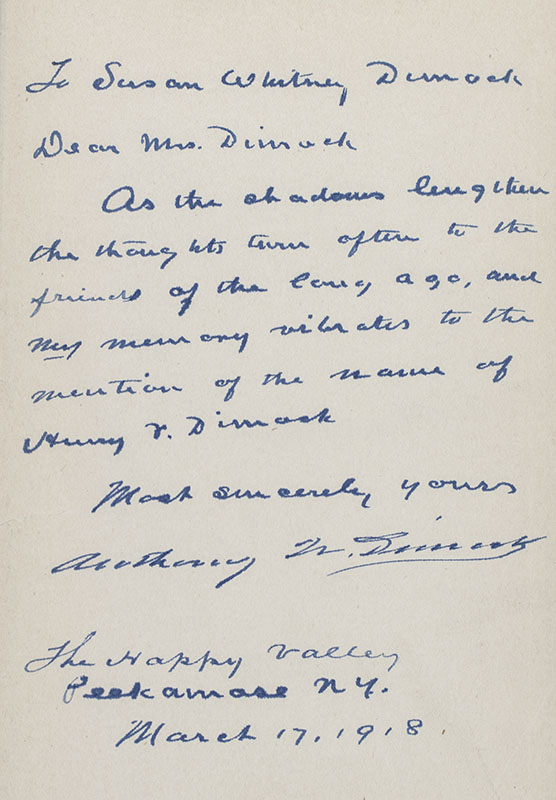 To Susan Whitney Dimock
Dear Mrs. Dimock
As the shadows lengthen
the thoughts turn often to the
friends of the long ago, and
my memory vibrates to the
mention of the name of
Henry F. Dimock
Most sincerely yours
Anthony W. Dimock
The Happy Valley
Peekamose N.Y.
March 17, 1918.